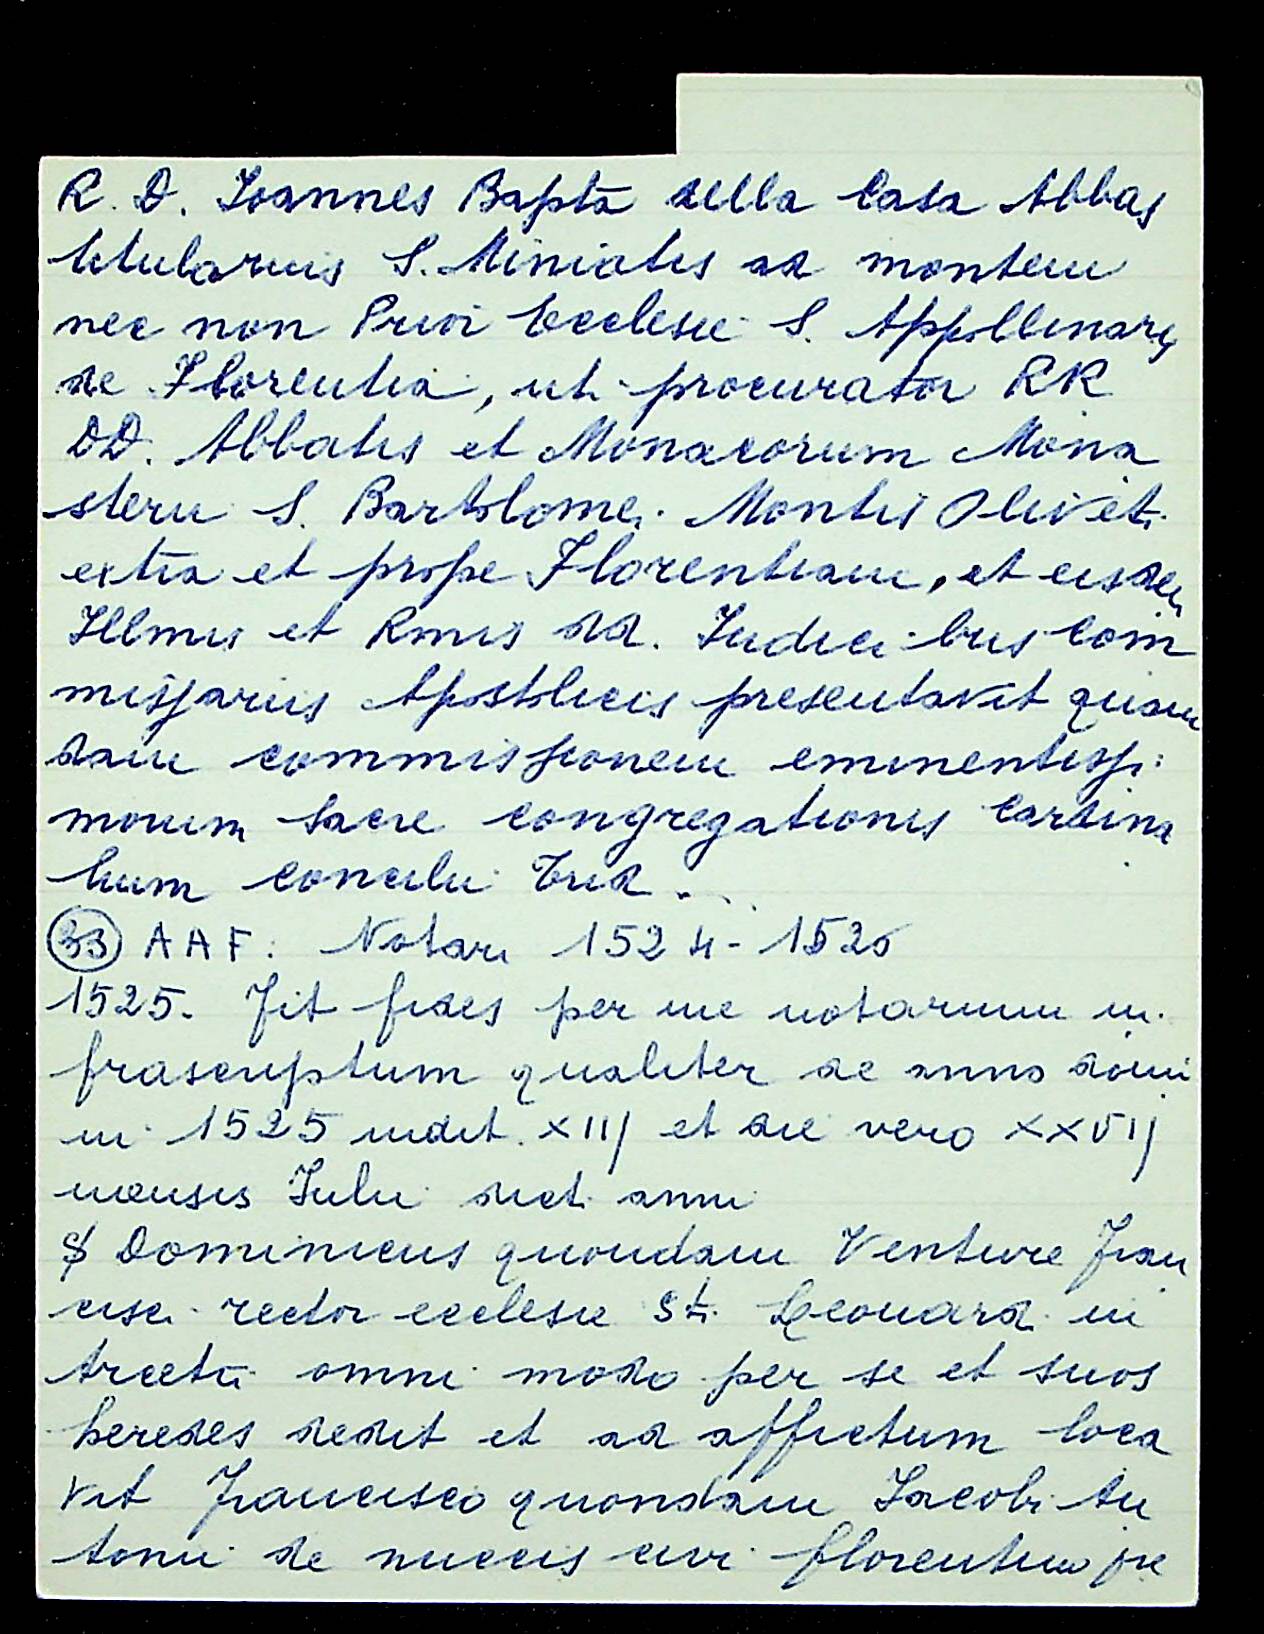 R. D. Ioannes Bapta della Casa Abbas
titularius S. Miniatis ad montem
nec non Prior Ecclesie S. Appollinaris
de Florentia, uti procurator RR
DD. Abbatis et Monacorum Mona
sterii S. Bartolomei Montis Oliveti
extra et prope Florentiam, et eisdem
Illmis et Rmis dd. Iudici-bus Com
missariis Apostolicis presentavit quam
dam commissionem eminentissi
morum Sacre congregationis Cardina
lium Concilii Trid...
(33) AAF: Notari 1524-1526
1525. Fit fides per me notarium in
frascriptum qualiter de anno domi
ni 1525 indit. XIIJ et die vero XXVIJ
mensis Iulii dicti anni
S Dominicus quondam Venture Fran
cisci rector ecclesie Sti Leonardi in
arcetri omni modo per se et suos
heredes dedit et ad affictum loca
vit Francisco quondam Iacobi An
tonii de nuccis civi florentino pre